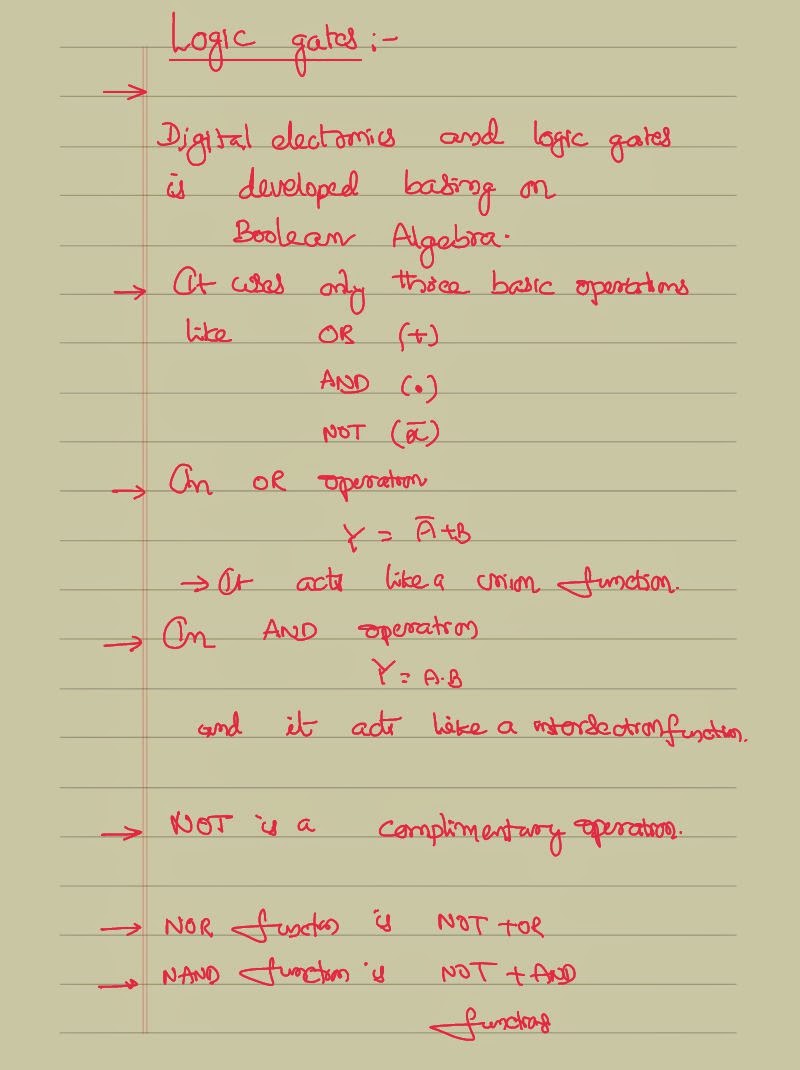 Logic gates :-
→
Digital electornics and logic gates
is developed basing on
Boolean Algebra.
→ It uses only three basic operations
like OR (+)
AND (•)
NOT (x̅)
→ In OR operation
Y = A̅+B
→ It acts like a union function.
→ In AND operation
Y = A.B
and it acts like a intersection function.
→ NOT is a complimentary operation.
→ NOR function is NOT + OR
→ NAND function is NOT + AND
functions